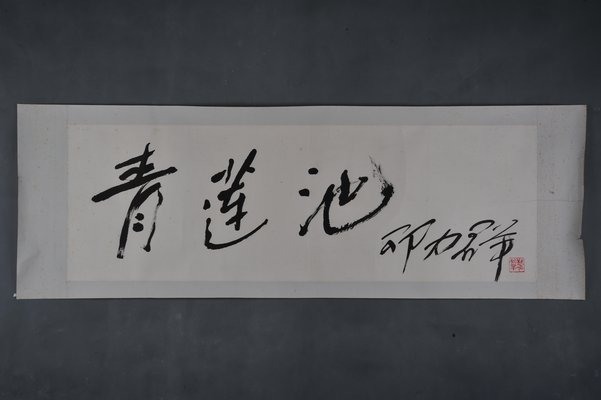 青蓮池
邓力群